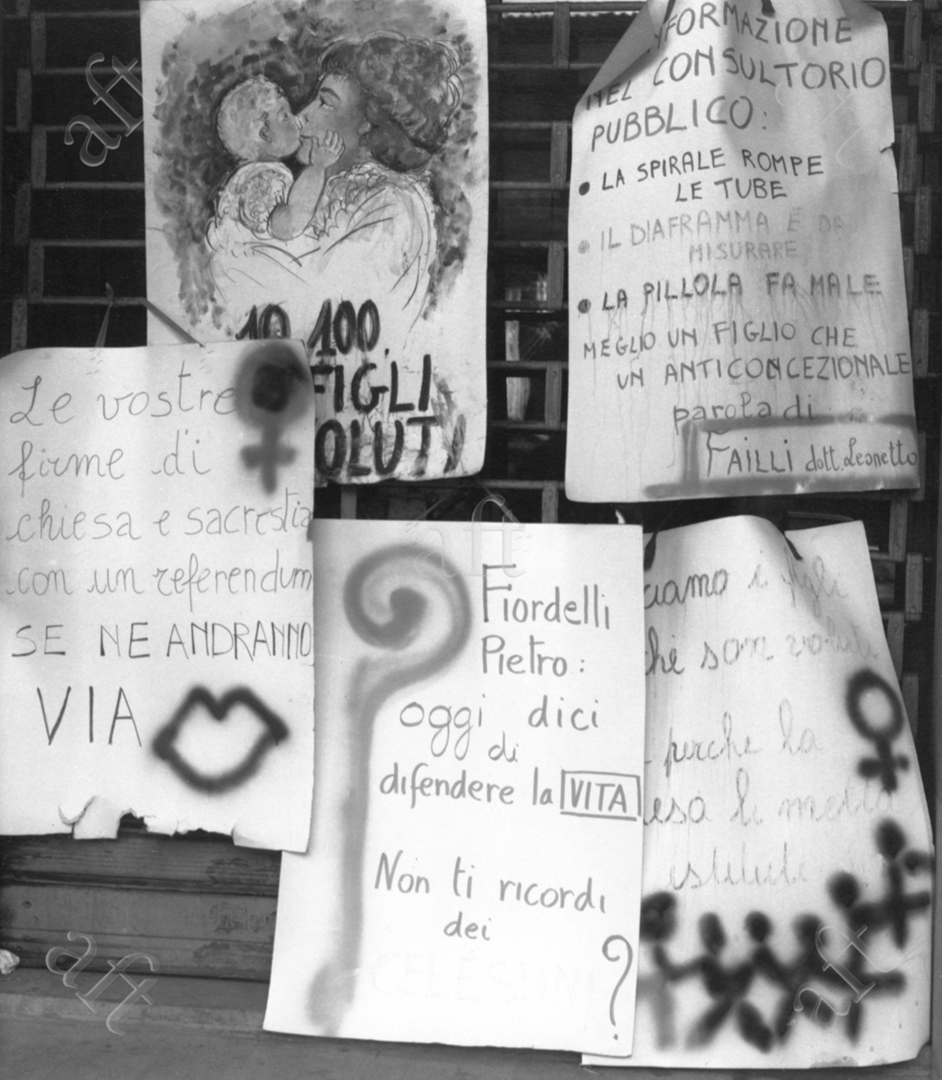 10 100
FIGLI
NFORMAZIONE
NEL CONSULTORIO
PUBBLICO:
• LA SPIRALE ROMPE
LE TUBE
• IL DIAFRAMMA È DA
MISURARE
• LA PILLOLA FA MALE
MEGLIO UN FIGLIO CHE
UN ANTICONCEZIONALE
parola di
FAILLI dott. Leonetto
Le vostre
firme di
chiesa e sacrestia
con un referendum
SE NE ANDRANNO
VIA
Fiordelli
Pietro:
oggi dici
di
difendere la VITA
Non ti ricordi
dei
CELESTINI
?
ciamo i figli
che son voluti
perche la
esa li mett
aft
aft
aft
aft